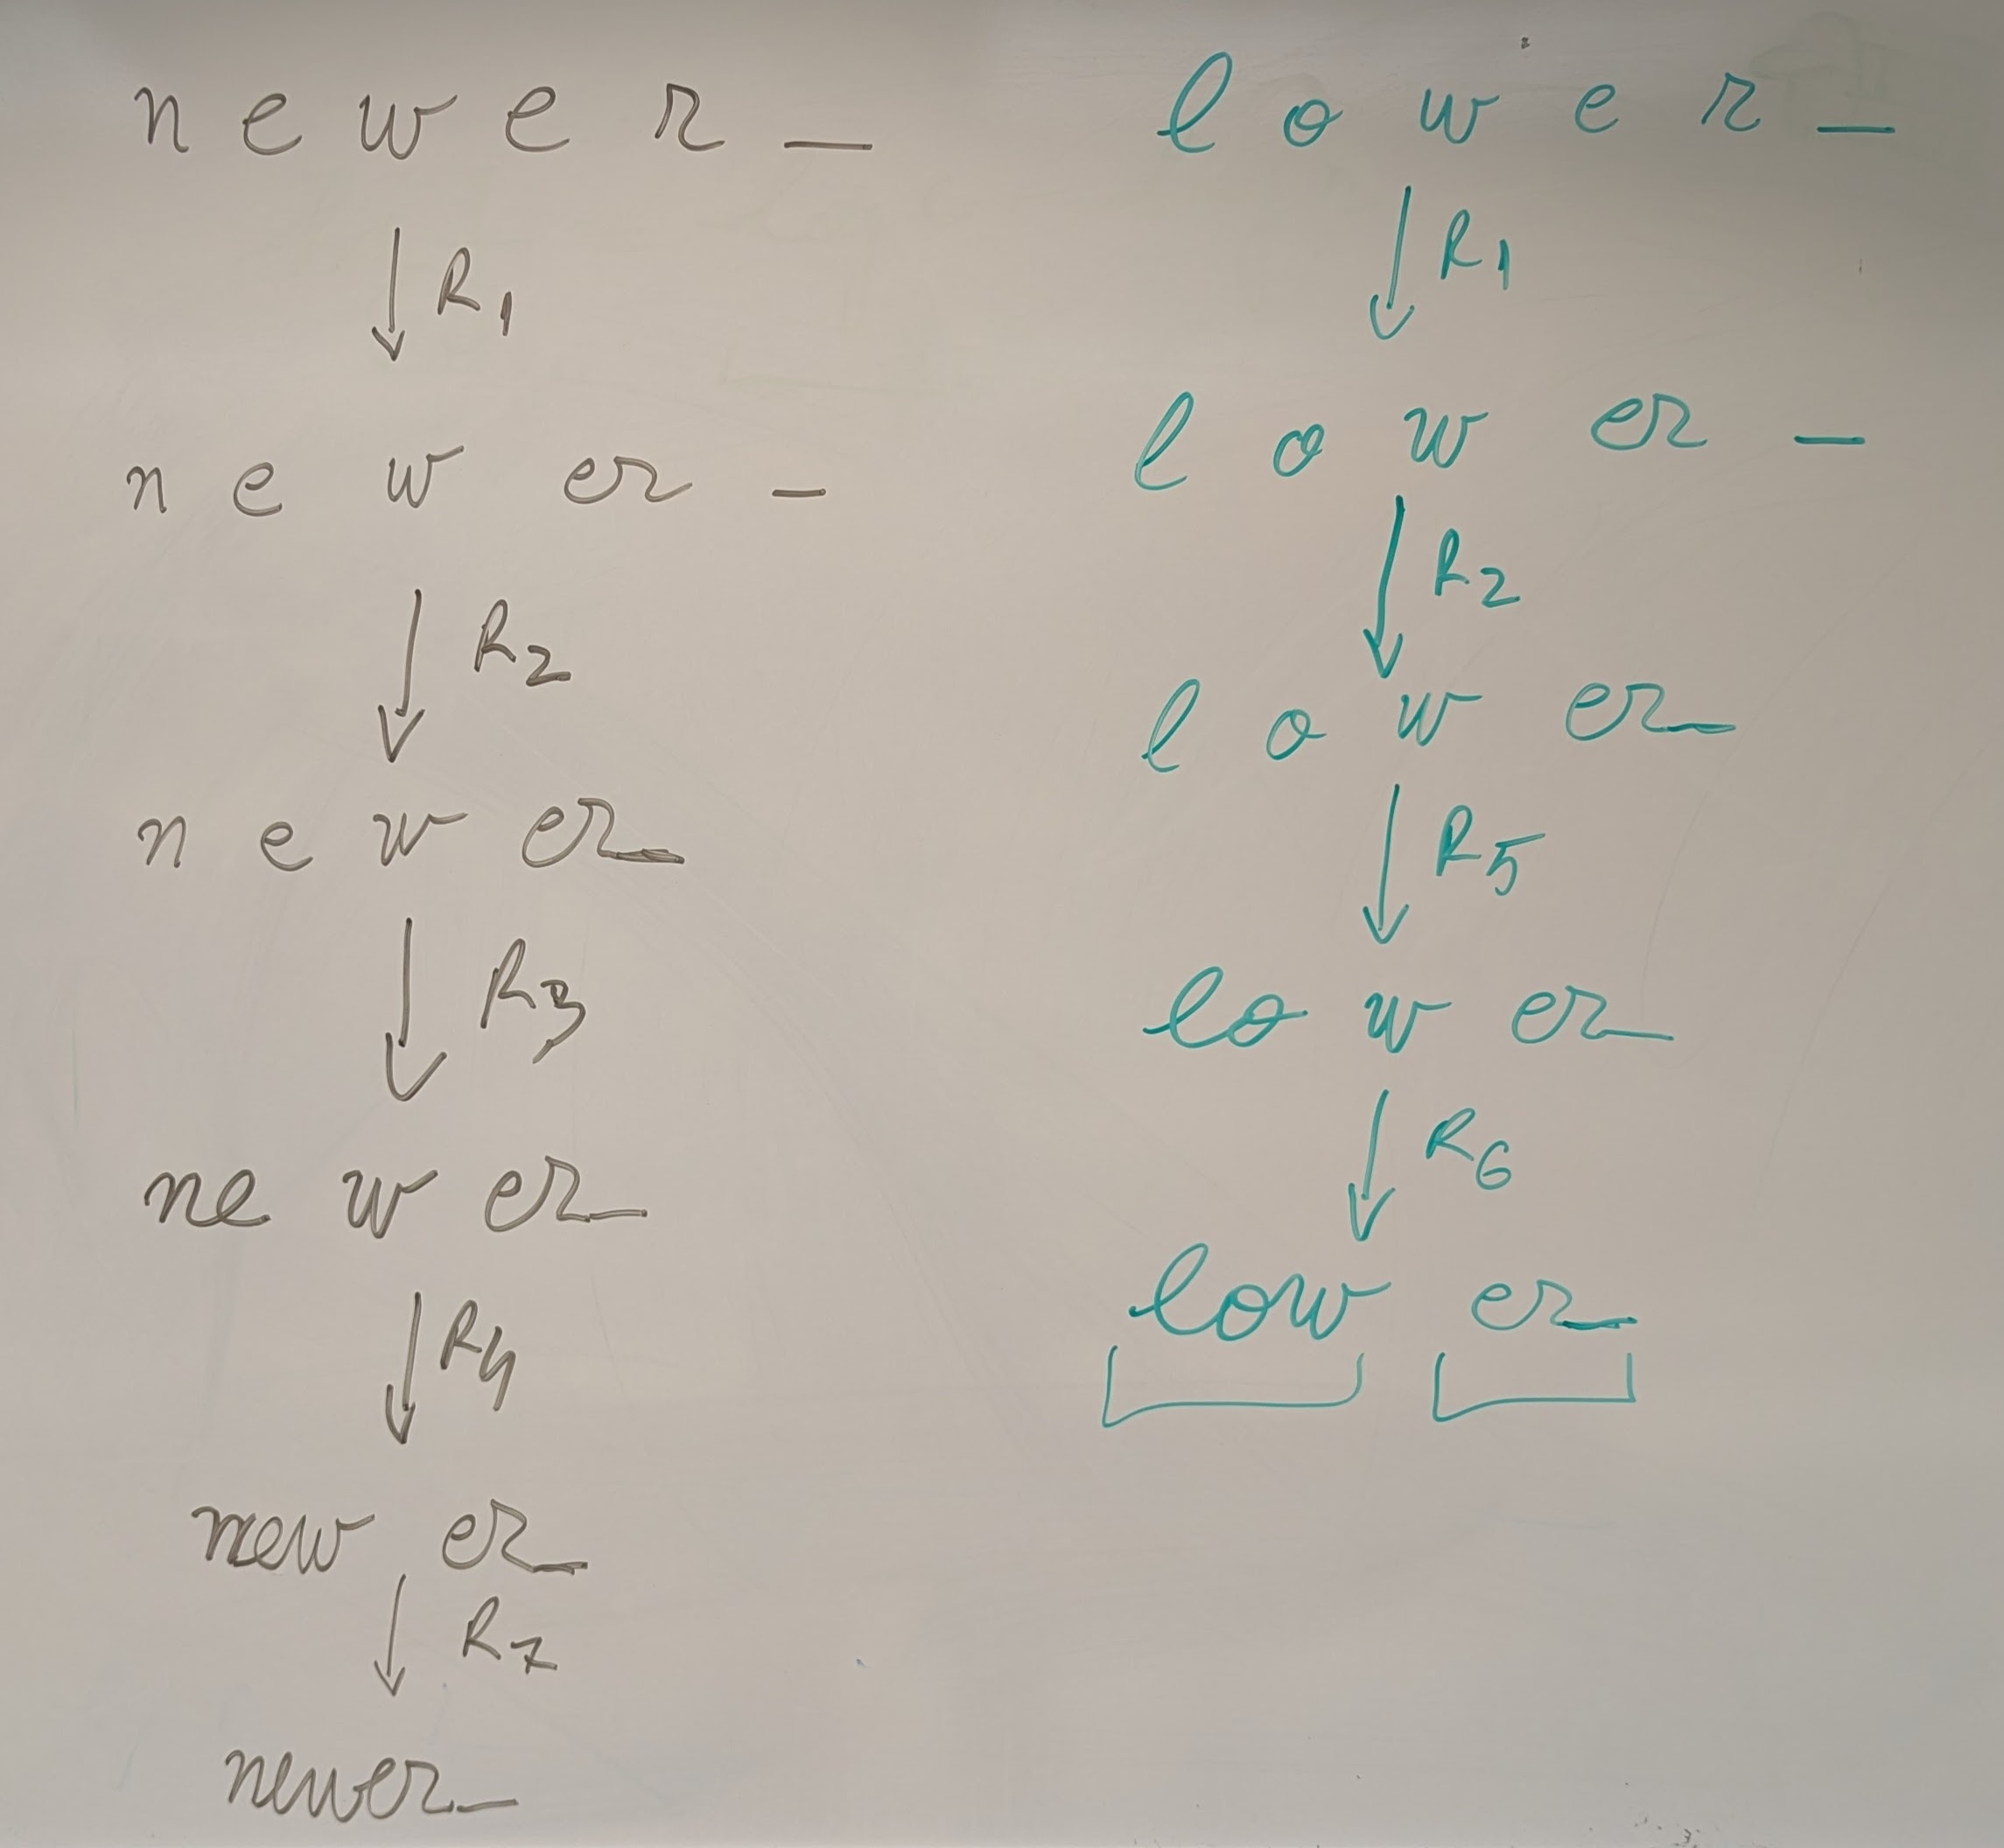 n e w e r _
R1
n e w er _
R2
n e w er_
R3
ne w er_
R4
new er_
R7
newer_
l o w e r _
R1
l o w er _
R2
l o w er_
R5
lo w er_
R6
low er_